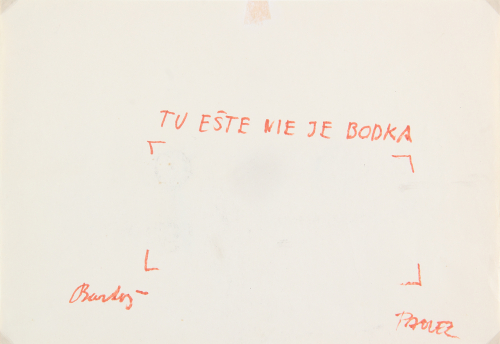 TU EŠTE NIE JE BODKA
Bartoš